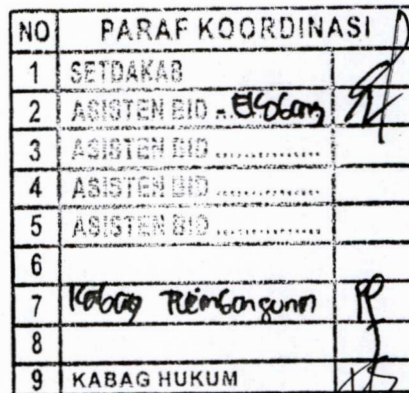 NO PARAF KOORDINASI
1 SETDAKAB
2 ASISTEN BID . . Ekobang
3 ASISTEN BID ...............
4 ASISTEN BID ...............
5 ASISTEN BID ...............
6
7 Kabag Pembangunan
8
9 KABAG HUKUM